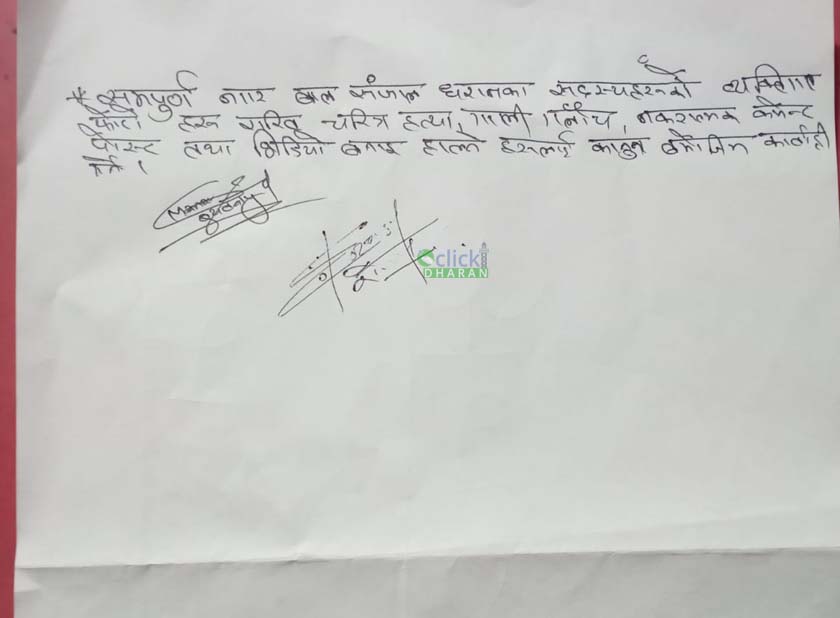 * सम्पूर्ण नगर बाल संजाल धरानका सदस्यहरुको व्यक्तिगत
फोटो हरु चरित्र हत्या, गाली गलौच, नकरात्मक कमेन्ट
पोस्ट तथा भिडियो बनाइ हाल्ने हरुलाई कानुन बमोजिम कार्वाही
गर्ने ।
click
DHARAN